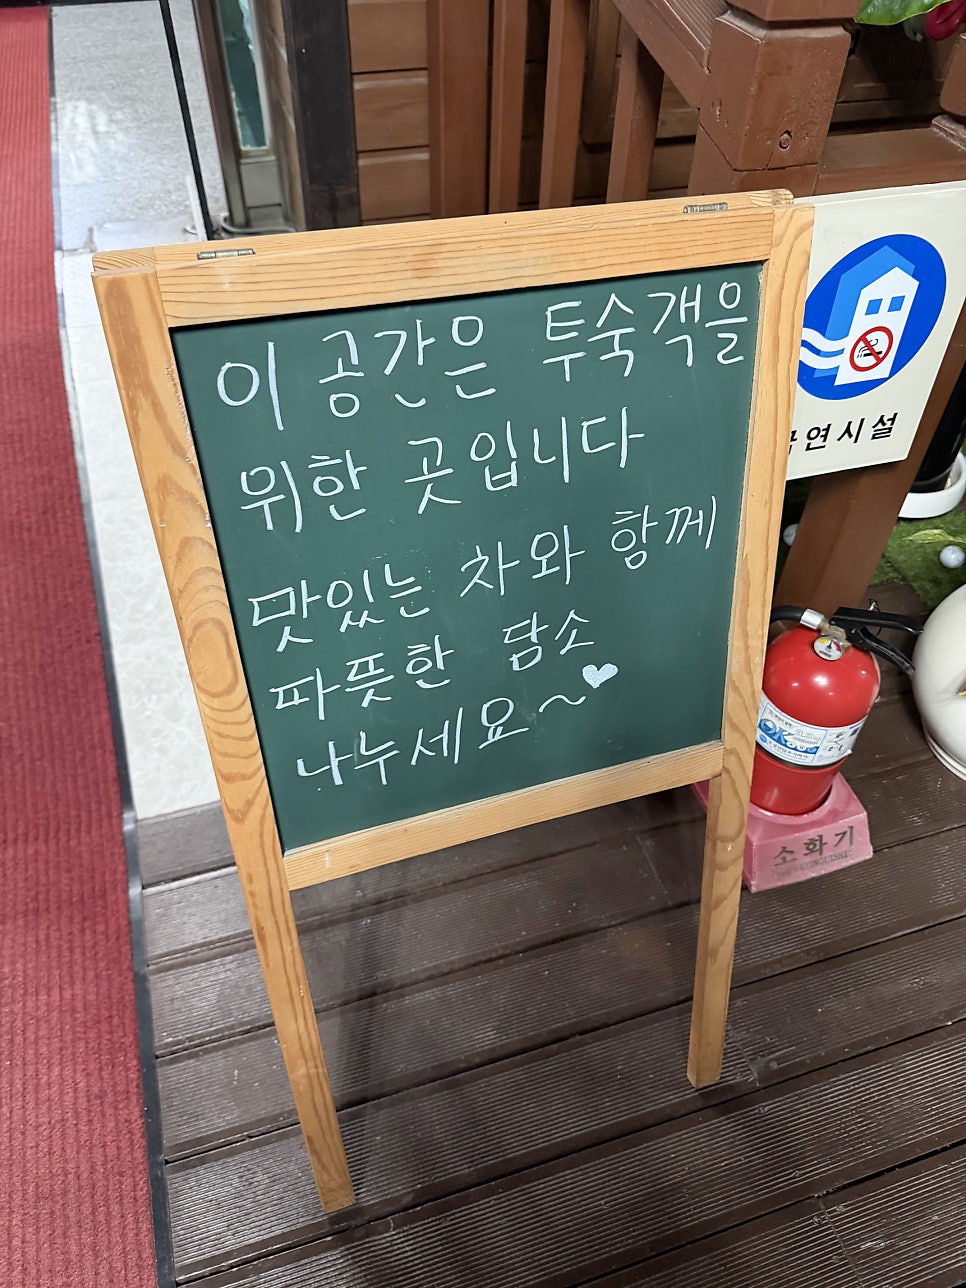 이 공간은 투숙객을
위한 곳입니다
맛있는 차와 함께
따뜻한 담소
나누세요~♥
연시설
OK
소화기